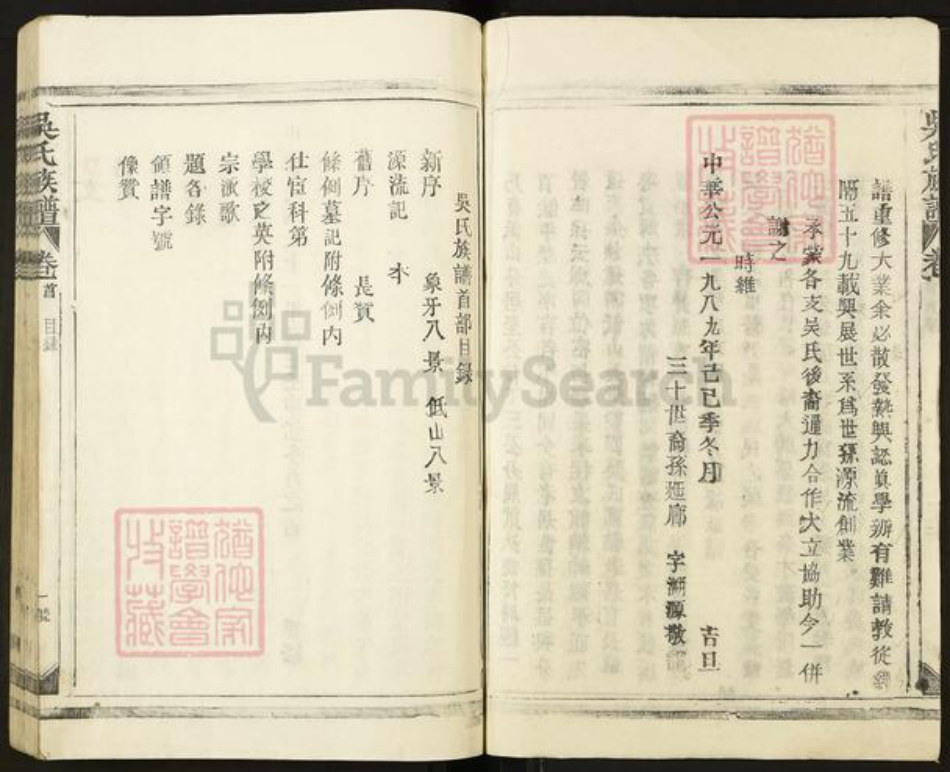 譜重修大業余必散發熱興認眞學辦有難請教從
隔五十九載興展世系爲世孫源流創業
承蒙各支吳氏後裔通力合作大立協助今一併
謝之
時維
中華公元一九八九年己巳季冬月 吉旦
三十世裔孫廷廊 字溯源敬
吳氏族譜
吳氏族譜首部目錄
新序 象牙八景 低山八景
源流記 本
舊序 長賓
條例墓記附條例內
仕宦科第
學校之英附條例內
宗派歌
題各錄
領譜字號
像贊
吳氏族譜 卷首 目錄
猶他家
譜學會
收藏
猶他家
譜學會
收藏
FamilySearch